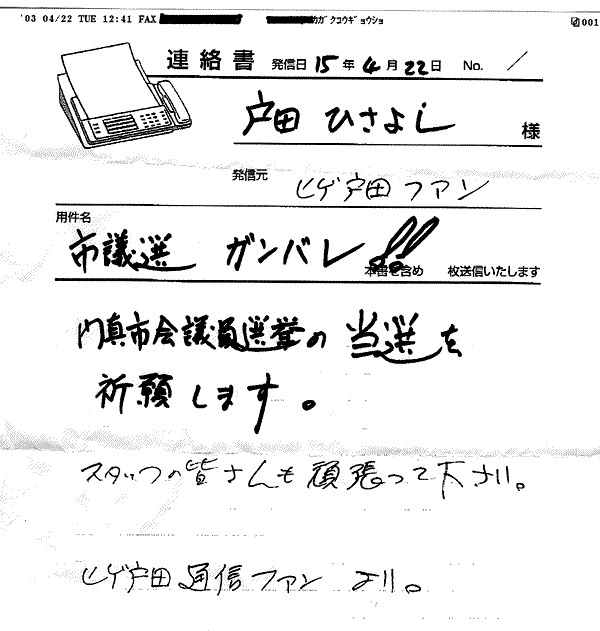 '03 04/22 TUE 12:41 FAX カガクコウギョウショ 001
連絡書 発信日 15年4月22日 No. /
戸田 ひさよし 様
発信元 ヒゲ戸田ファン
用件名
市議選 ガンバレ!!
本書を含め 枚送信いたします
門真市会議員選挙の当選を
祈願します。
スタッフの皆さんも頑張って下さい。
ヒゲ戸田通信ファン より。